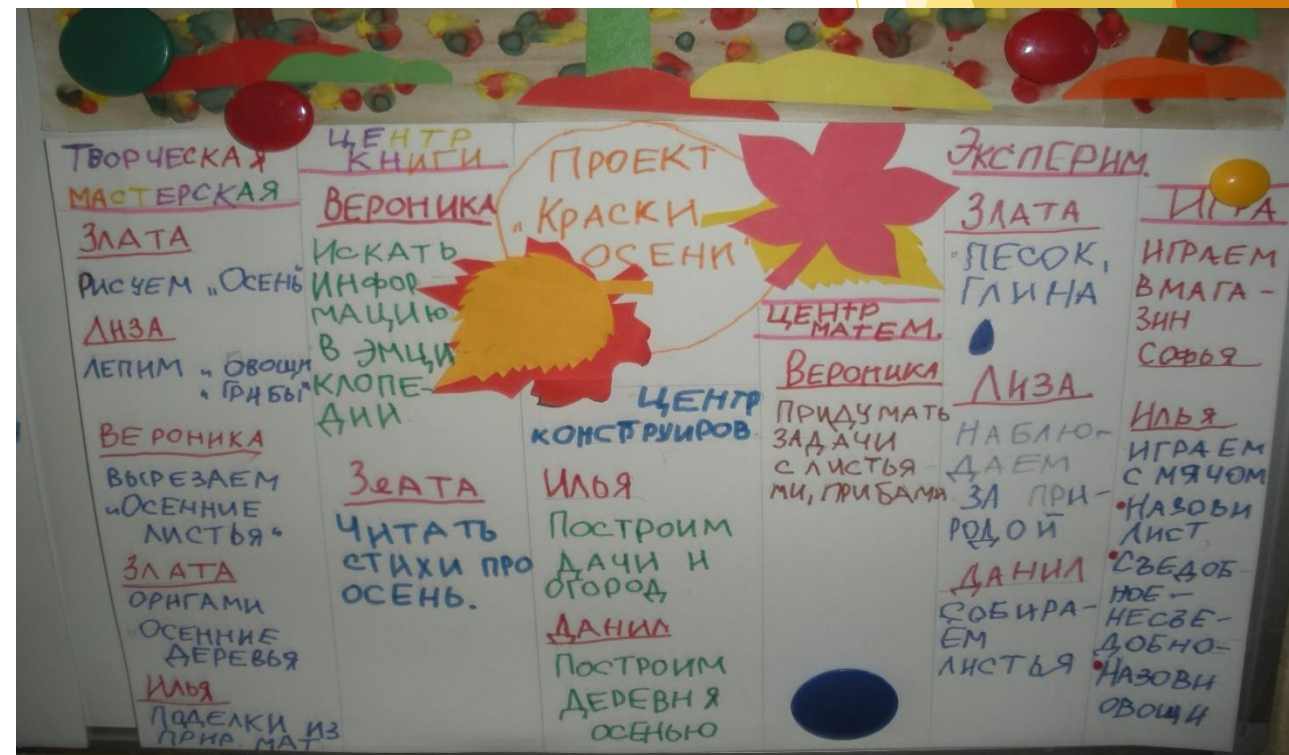 ТВОРЧЕСКАЯ
МАСТЕРСКАЯ
ЗЛАТА
РИСУЕМ „ОСЕНЬ
ЛИЗА
ЛЕПИМ „ОВОЩИ
„ГРИБЫ"
ВЕРОНИКА
ВЫРЕЗАЕМ
„ОСЕННИЕ
ЛИСТЬЯ"
ЗЛАТА
ОРИГАМИ
„ОСЕННИЕ
ДЕРЕВЬЯ
ИЛЬЯ
ПОДЕЛКИ ИЗ
ПРИР. МАТ.
ЦЕНТР
КНИГИ
ВЕРОНИКА
ИСКАТЬ
ИНФОР-
МАЦИЮ
В ЭМЦИ-
КЛОПЕ-
ДИИ
ЗЛАТА
ЧИТАТЬ
СТИХИ ПРО
ОСЕНЬ.
ПРОЕКТ
„КРАСКИ
ОСЕНИ"
ЦЕНТР
КОНСТРУИРОВ.
ИЛЬЯ
ПОСТРОИМ
ДАЧИ И
ОГОРОД
ДАНИЛ
ПОСТРОИМ
ДЕРЕВНЯ
ОСЕНЬЮ
ЦЕНТР
МАТЕМ.
ВЕРОНИКА
ПРИДУМАТЬ
ЗАДАЧИ
С ЛИСТЬЯ-
МИ, ГРИБАМИ
ЭКСПЕРИМ.
ЗЛАТА
ПЕСОК,
ГЛИНА
ЛИЗА
НАБЛЮ-
ДАЕМ
ЗА ПРИ-
РОДОЙ
ДАНИЛ
СОБИРА-
ЕМ
ЛИСТЬЯ
ИГРА
ИГРАЕМ
В МАГА-
ЗИН
СОФЬЯ
ИЛЬЯ
ИГРАЕМ
С МЯЧОМ
•НАЗОВИ
ЛИСТ
•СЪЕДОБ-
НОЕ-
НЕСЪЕ-
ДОБНО-
•НАЗОВИ
ОВОЩИ